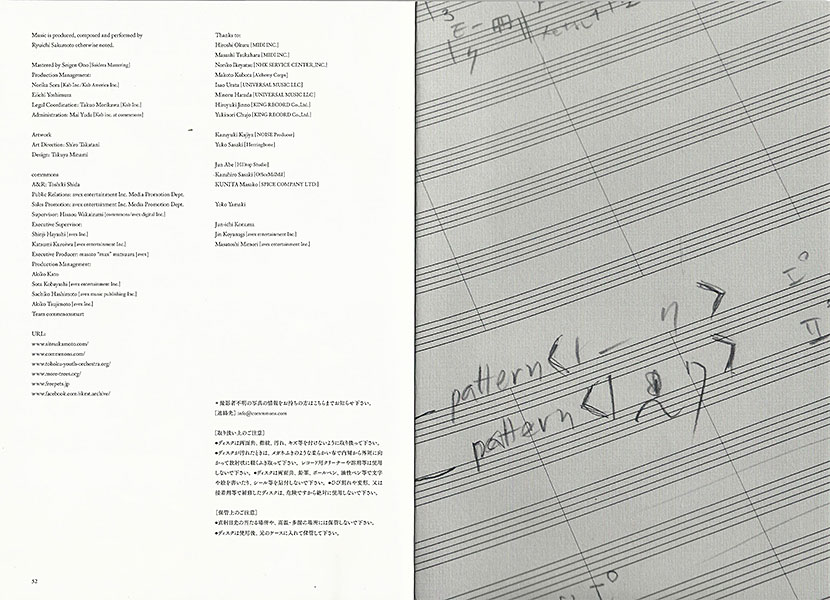 Music is produced, composed and performed by
Ryuichi Sakamoto otherwise noted.
Mastered by Seigen Ono [Saidera Mastering]
Production Management:
Norika Sora [Kab Inc./Kab America Inc.]
Eiichi Yoshimura
Legal Coordination: Takuo Morikawa [Kab Inc.]
Administration: Mai Yuda [Kab inc. at commmons]
Artwork
Art Direction: Shiro Takatani
Design: Takuya Minami
commmons
A&R: Toshiki Shida
Public Relations: avex entertainment Inc. Media Promotion Dept.
Sales Promotion: avex entertainment Inc. Media Promotion Dept.
Supervisor: Hisaou Wakaizumi [commmons/avex digital Inc.]
Executive Supervisor:
Shinji Hayashi [avex Inc.]
Katsumi Kuroiwa [avex entertainment Inc.]
Executive Producer: masato "max" matsuura [avex]
Production Management:
Akiko Kato
Sota Kobayashi [avex entertainment Inc.]
Sachiko Hashimoto [avex music publishing Inc.]
Akiko Tsujimoto [avex Inc.]
Team commmonsmart
URL:
www.sitesakamoto.com/
www.commmons.com/
www.tohoku-youth-orchestra.org/
www.more-trees.org/
www.freepets.jp
www.facebook.com/skmt.archive/
52
Thanks to:
Hiroshi Okura [MIDI INC.]
Masashi Tsukahara [MIDI INC.]
Noriko Ikeyatsu [NHK SERVICE CENTER, INC.]
Makoto Kubota [Alchemy Corps]
Isao Urata [UNIVERSAL MUSIC LLC]
Minoru Harada [UNIVERSAL MUSIC LLC]
Hiroyuki Jinno [KING RECORD Co., Ltd.]
Yukinori Chujo [KING RECORD Co., Ltd.]
Kazuyuki Kajiya [NOISE Producer]
Yoko Sasaki [Herringbone]
Jun Abe [Hilltop Studio]
Kazuhiro Sasaki [OfficeMdMd]
KUNITA Masako [SPICE COMPANY LTD.]
Yoko Yamaki
Jun-ichi Konuma
Jin Koyanagi [avex entertainment Inc.]
Masatoshi Miznori [avex entertainment Inc.]
＊撮影者不明の写真の情報をお持ちの方はこちらまでお知らせ下さい。
[連絡先] info@commmons.com
[取り扱い上のご注意]
●ディスクは両面共、指紋、汚れ、キズ等を付けないように取り扱って下さい。
●ディスクが汚れたときは、メガネふきのような柔らかい布で内周から外周に向
かって放射状に軽くふき取って下さい。レコード用クリーナーや溶剤等は使用
しないで下さい。●ディスクは両面共、鉛筆、ボールペン、油性ペン等で文字
や絵を書いたり、シール等を貼付しないで下さい。●ひび割れや変形、又は
接着剤等で補修したディスクは、危険ですから絶対に使用しないで下さい。
[保管上のご注意]
●直射日光の当たる場所や、高温・多湿の場所には保管しないで下さい。
●ディスクは使用後、元のケースに入れて保管して下さい。
3
pattern
pattern